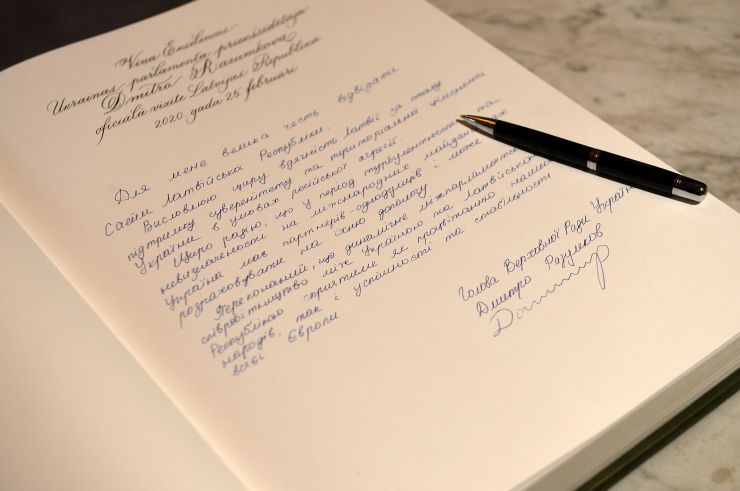 Viņa Ekselences
Ukrainas parlamenta priekšsēdētāja
Dmitro Razumkova
oficiālā vizīte Latvijas Republikā
2020. gada 25. februārī
Для мене велика честь відвідати
Сейм Латвійської Республіки.
Висловлюю щиру вдячність Латвії за сталу
підтримку суверенітету та територіальної цілісності
України в умовах російської агресії.
Щиро радію, що у період турбулентності та
невизначеності на міжнародних майданчиках
Україна має партнерів-однодумців і може
розраховувати на їхню допомогу.
Переконаний, що динамічне міжпарламентське
співробітництво між Україною та Латвійською
Республікою сприятиме як процвітанню наших
народів, так і успішності та стабільності
всієї Європи.
Голова Верховної Ради України
Дмитро Разумков